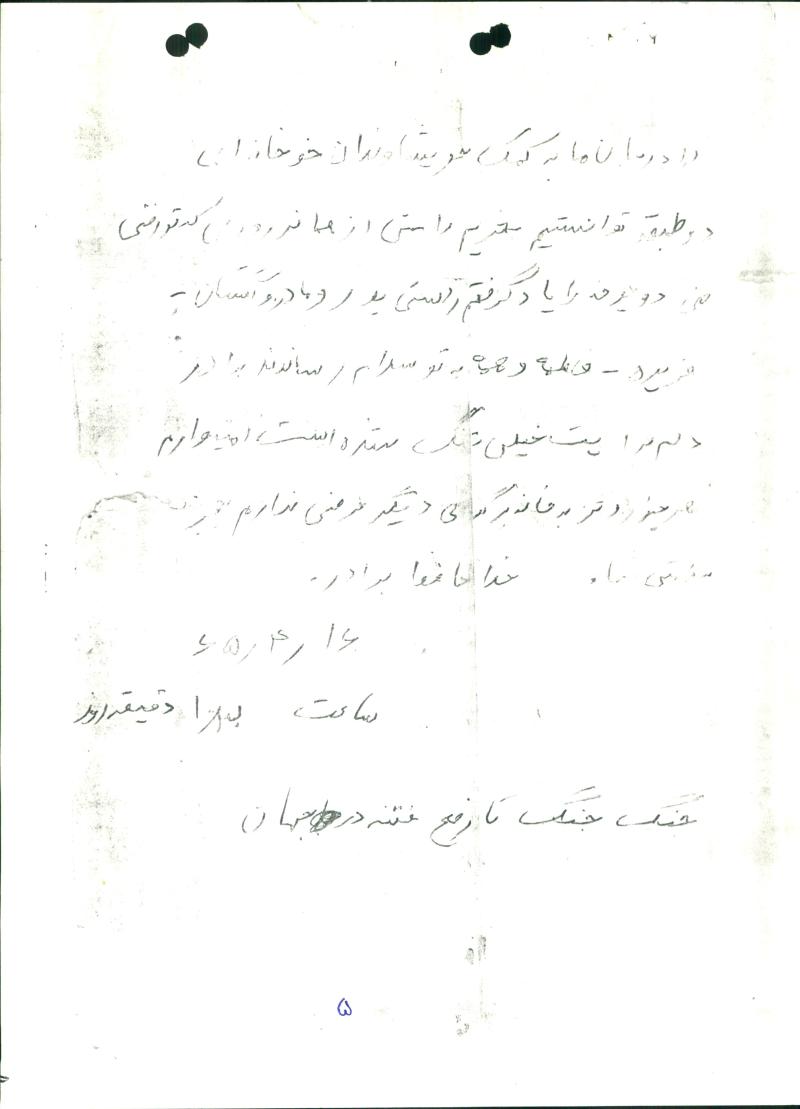 برادر جان ما به کمک خویشاوندان خود خانه ای
دو طبقه توانستیم بخریم راستی از همان روزی که تو رفتی
من دوچرخه را یاد گرفتم راستی پدر و مادر و
فریده - فاطمه و همه به تو سلام رساندند برادر
دلم برایت خیلی تنگ شده است امیدوارم
هر چه زودتر به خانه برگردی دیگر عرضی ندارم بجز
سلامتی شما. خدا حافظ برادر.
۶۵/۴/۱۶
ساعت دقیقه روز
جنگ جنگ تا رفع فتنه در جهان
۵